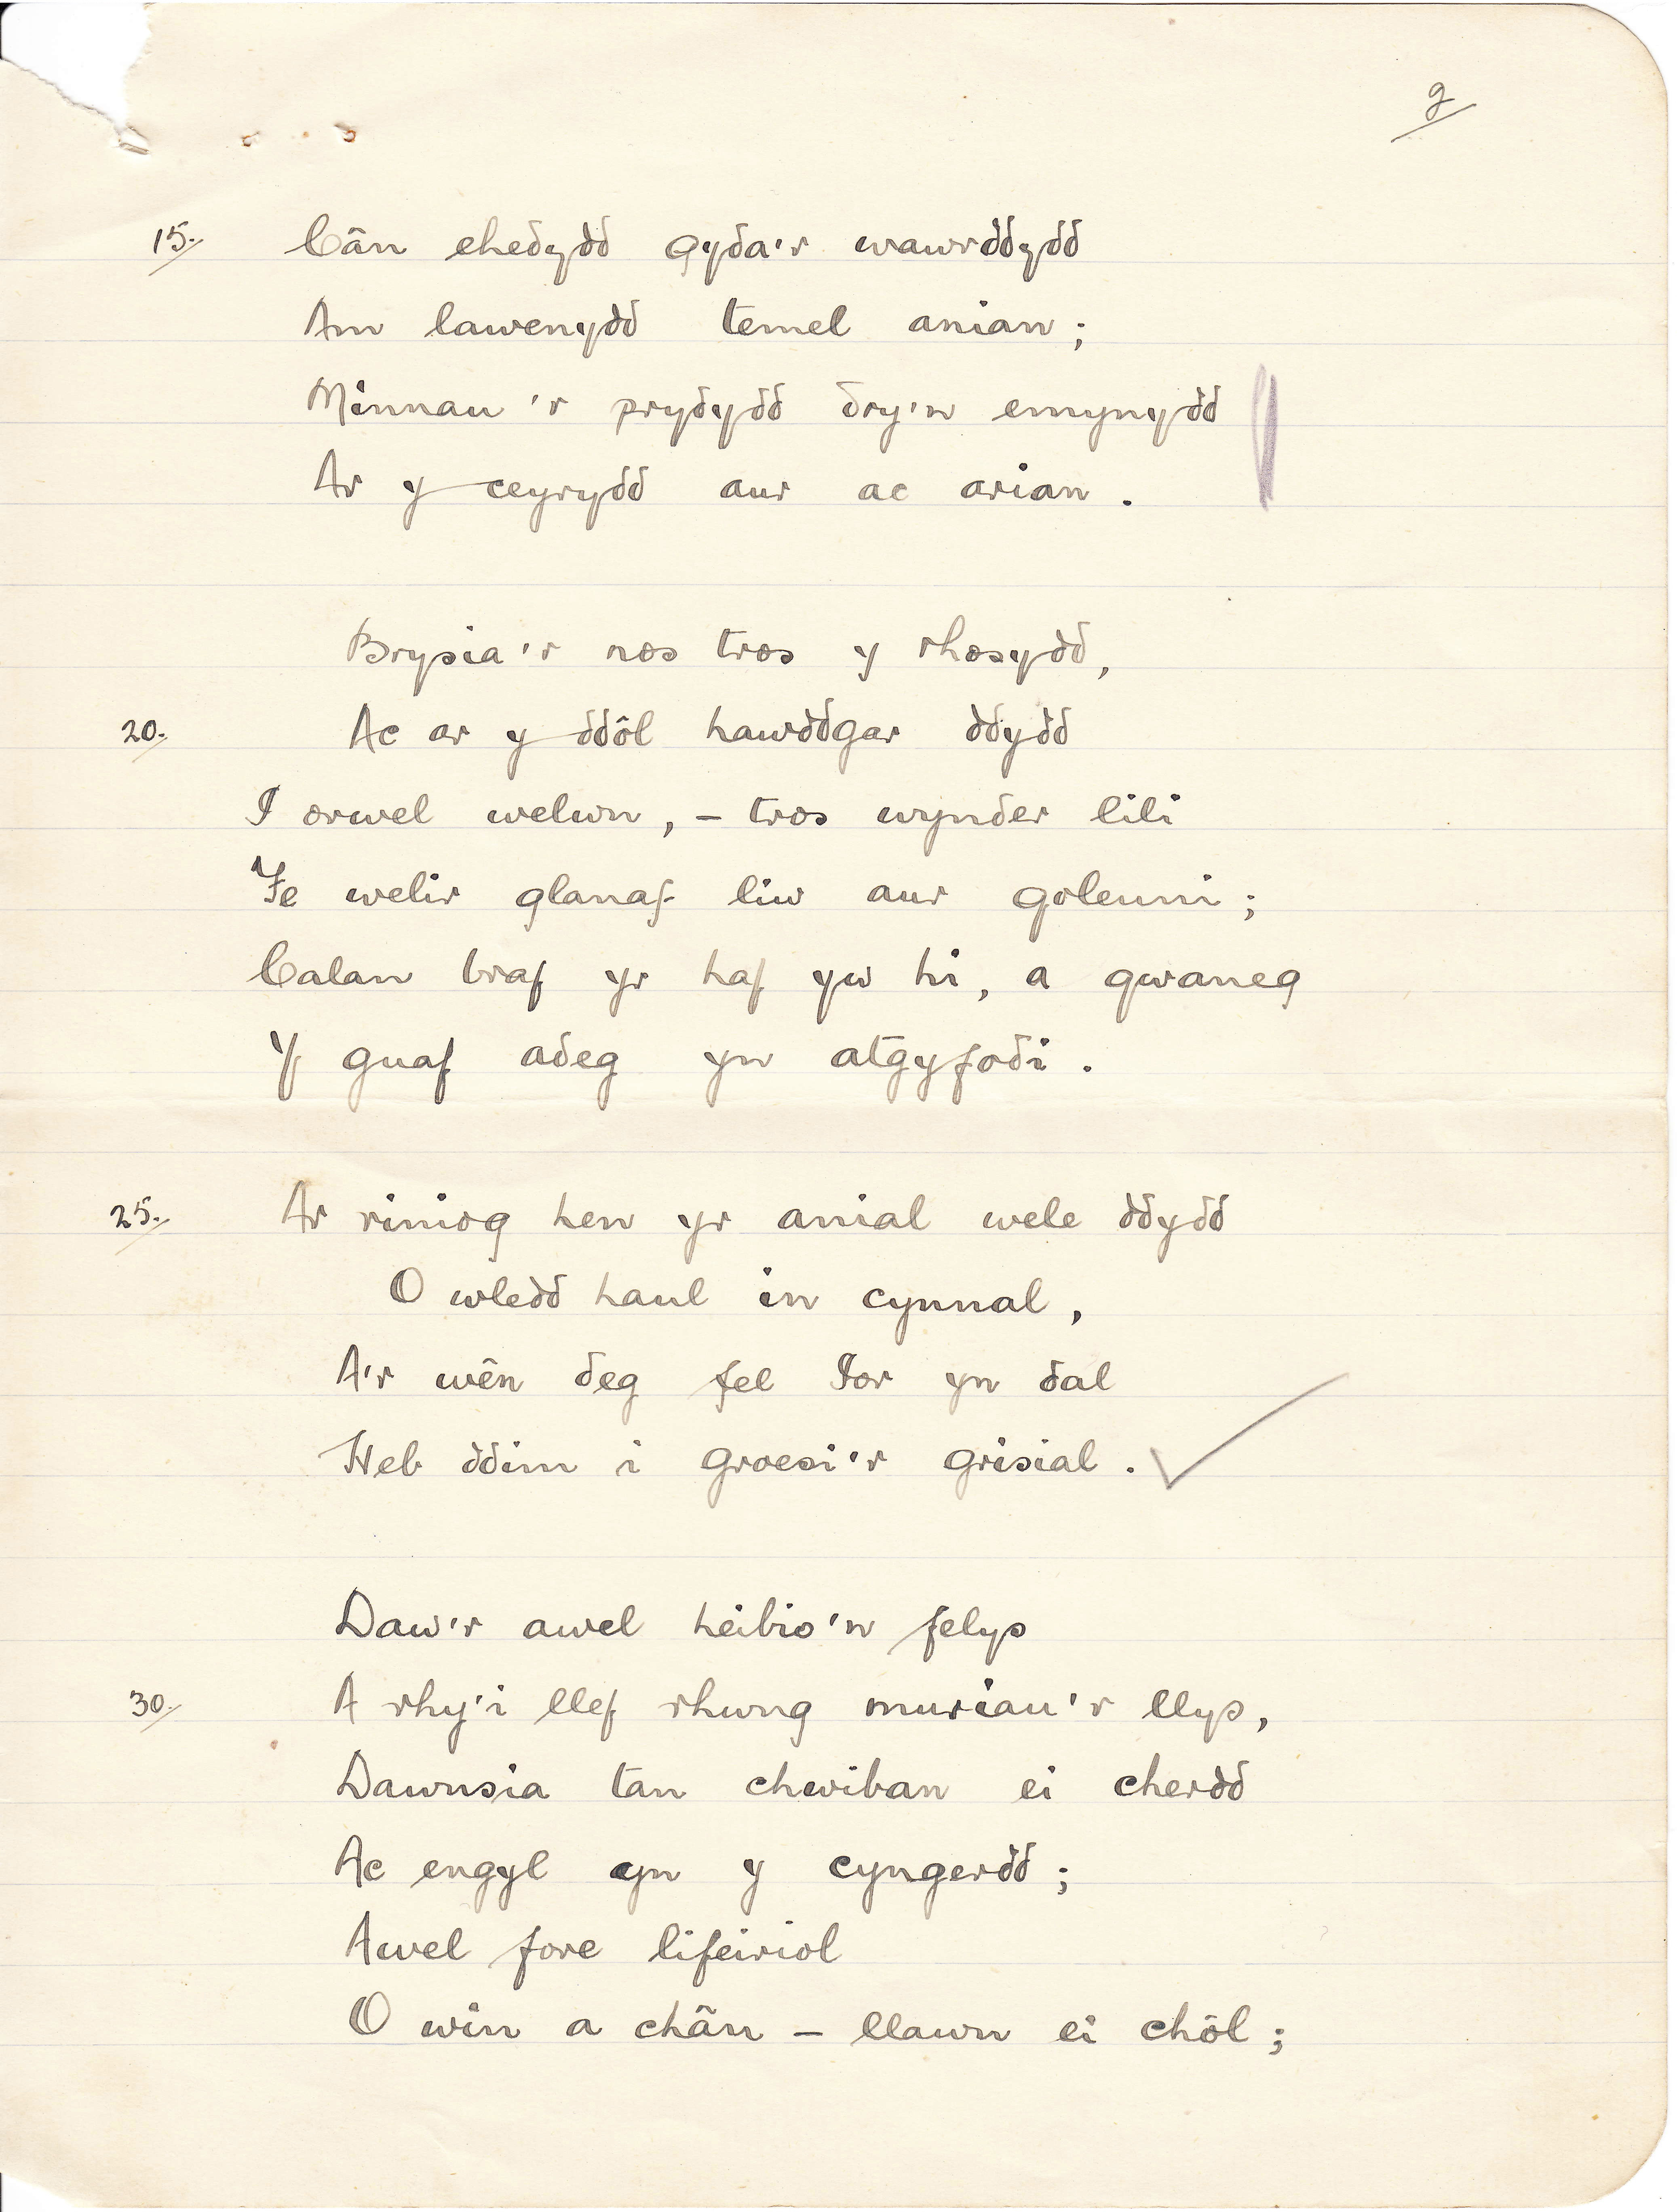 2
15. Cân ehedydd gyda'r wawrddydd
Am lawenydd temel anian;
Minnau'r prydydd dry'n emynydd
Ar y ceyrydd aur ac arian.
Brysia'r nos tros y rhosydd,
20. Ac ar y ddôl hawddgar ddydd
I orwel welwn, – tros wynder lili
Fe welir glanaf liw aur goleuni;
Calan braf yr haf yw hi, a gwaneg
Y gnaf adeg yn atgyfodi.
25. Ar riniog hen yr anial wele ddydd
O wledd haul in cynnal,
A'r wên deg fel Ior yn dal
Heb ddim i groesi'r grisial.
Daw'r awel heibio'n felys
30. A rhy'i llef rhwng muriau'r llys,
Dawnsia tan chwiban ei cherdd
Ac engyl yn y cyngerdd;
Awel fore lifeiriol
O win a chân – llawn ei chôl;